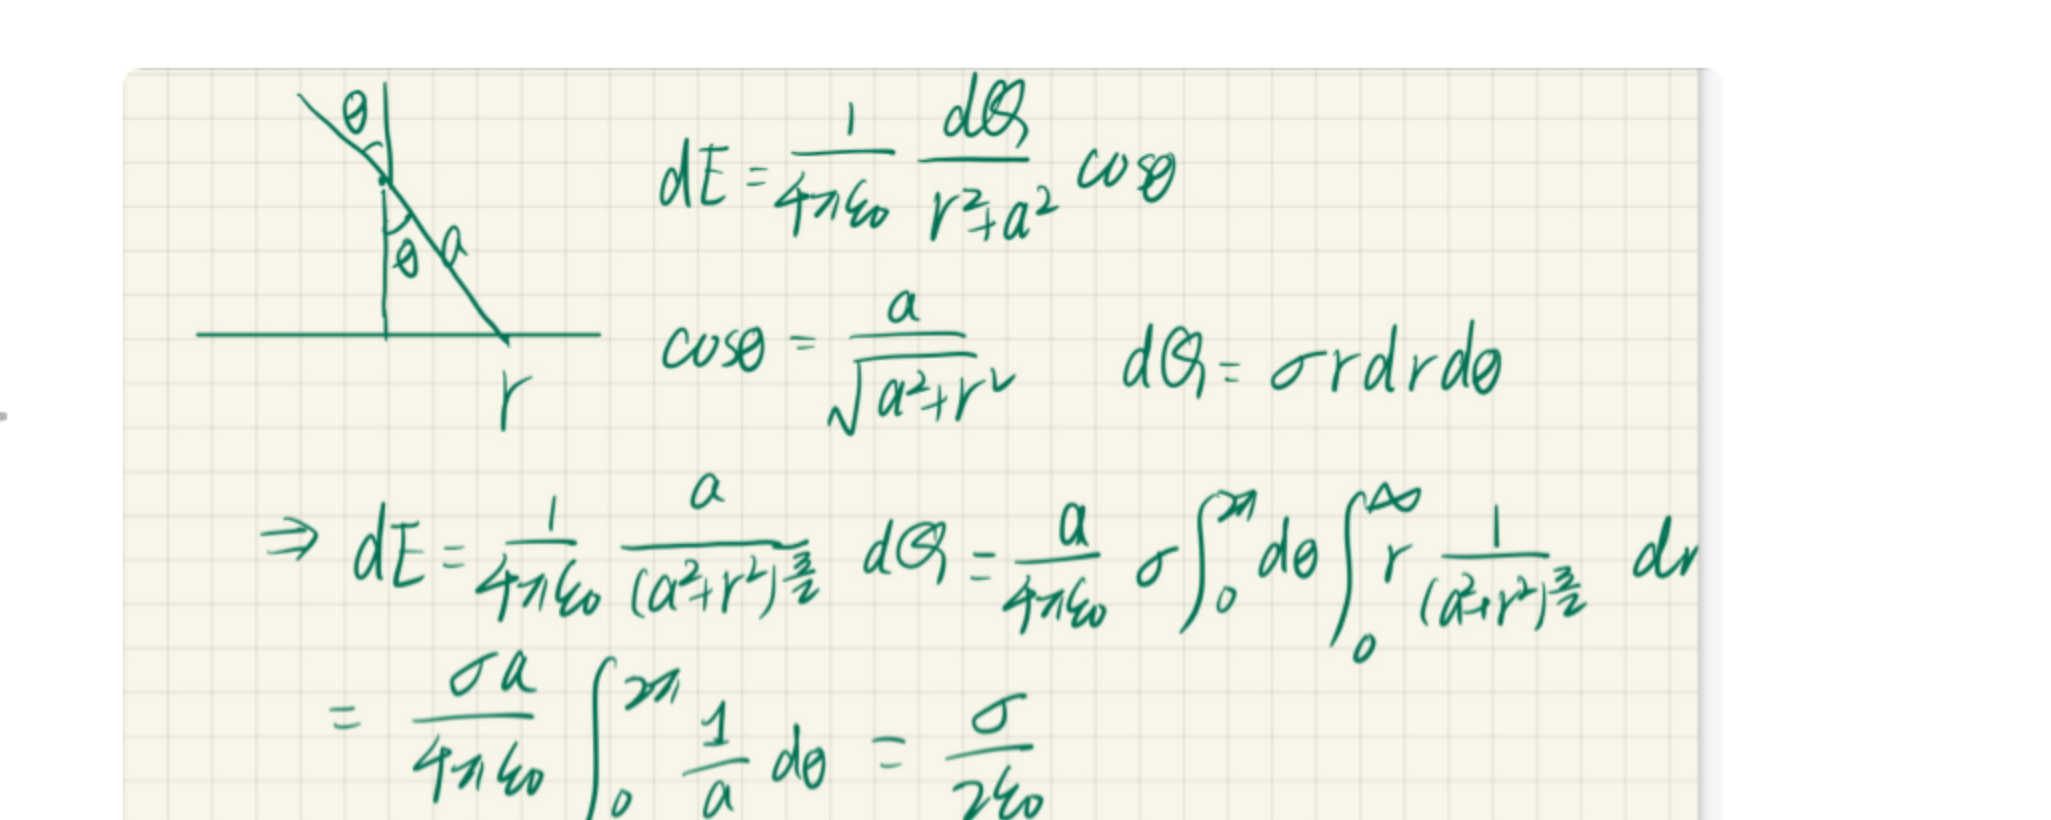 θ
θ a
r
dE = 1/(4πε₀) dQ/(r²+a²) cosθ
cosθ = a/√(a²+r²) dQ = σrdrdθ
⇒ dE = 1/(4πε₀) a/(a²+r²)^(3/2) dQ = a/(4πε₀) σ ∫₀^(2π) dθ ∫₀^∞ r 1/(a²+r²)^(3/2) dr
= σa/(4πε₀) ∫₀^(2π) 1/a dθ = σ/(2ε₀)